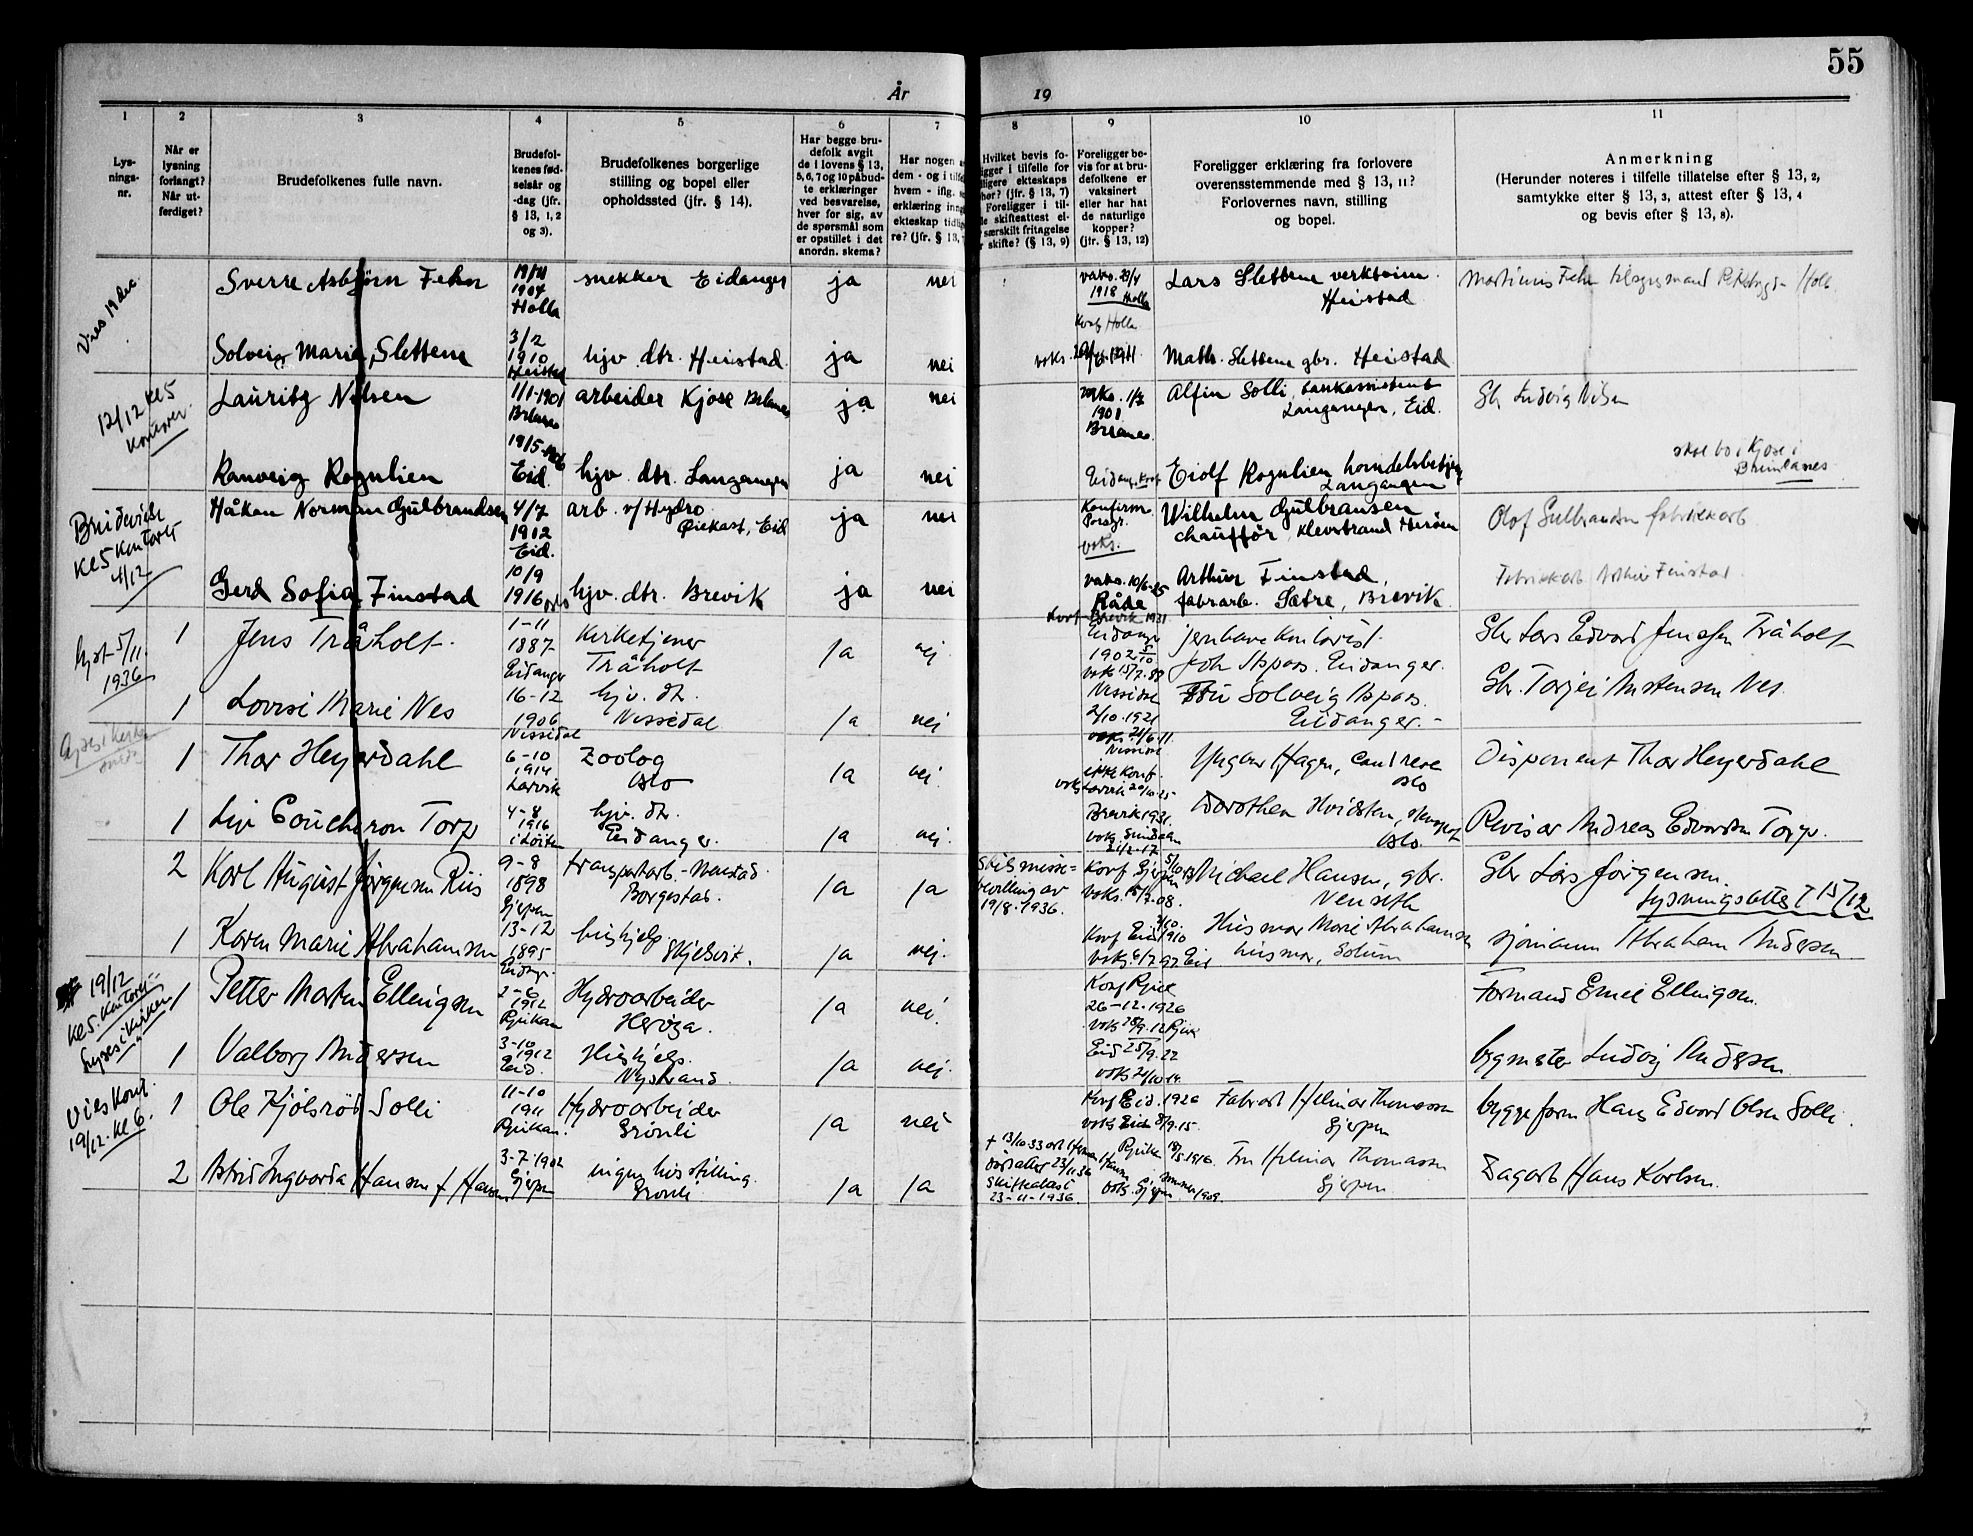 55
År 19
1 2 3 4 5 6 7 8 9 10 11
Lys-
nings-
nr.
Når er
lysning
forlangt?
Når ut-
ferdiget?
Brudefolkenes fulle navn.
Brudefol-
kenes fød-
selsår og
-dag (jfr.
§ 13, 1, 2
og 3).
Brudefolkenes borgerlige
stilling og bopel eller
opholdssted (jfr. § 14).
Har begge bru-
defolk avgit
de i lovens § 13,
5, 6, 7 og 10 påbud-
te erklæringer
ved besvarelse,
hver for sig, av
de spørsmål som
er opstillet i det
anordn. skema?
Har nogen
dem - og i
hvem - iflg.
erklæring
ekteskap
re? (jfr. § 13,
Hvilket bevis fo-
igger i tilfelle for
ligere ekteskaps
hør? (jfr. § 13, 7)
Foreligger i til-
le skifteattest el-
særskilt fritagelse
skifte? (§ 13, 9)
Foreligger be-
vis for at bru-
defolkene er
vaksinert
eller har hat
de naturlige
kopper?
(jfr. § 13, 12)
Foreligger erklæring fra forlovere
overensstemmende med § 13, 11?
Forlovernes navn, stilling
og bopel.
Anmerkning
(Herunder noteres i tilfelle tillatelse efter § 13, 2,
samtykke efter § 13, 3, attest efter § 13, 4
og bevis efter § 13, 8).
Vies 19 dec.
Sverre Asbjörn Fehn
1904
Holla
snekker Eidanger
ja
nei
1918 Holla
Konf Holla
Lars Slettene
Heistad
Martinius Fehn
Solveig Marie Slettene
3/2
1910
Heistad
hjv. dtr. Heistad
ja
nei
Math. Slettene gbr. Heistad
12/12 kl 5
Lauritz Nilsen
1/1-1901
Brlanes
arbeider Kjose Brlanes
ja
nei
1901
Brlanes
Alfin Solli,
Langangen, Eid.
Ludvig Nilsen
skal bo i Kjose i
Brunlanes
Ranveig Rognlien
Eid.
hjv. dtr. Langangen
ja
nei
Eidang. Konf
Eiolf Rognlien
Langangen
kl 5 Kontoret
4/12
Håkon Norman Gulbrandsen
4/7
1902
Eid.
arb. v/Hydro
Eid
ja
nei
Konfirm.
Porsgr.
Wilhelm Gulbransen
chauffør, Herøen
Olaf Gulbrandsen fabrikkarb
Gerd Sofia Finstad
10/9
1916
hjv. dtr. Brevik
ja
nei
vaks. 10/6-25
Råde
Konf Brevik 1931
Arthur Finstad,
fabrarb. Sætre, Brevik
Fabrikkarb Arthur Finstad
Lyst 5/11
1936
1
Jens Tråholt.
1-11
1887
Eidanger
Kirketjener
Tråholt
ja
nei
Eidanger
1902
Joh Aspaas. Eidanger.
Gbr Lars Edvard Jensen Tråholt
1
Lovise Marie Nes
16-12
1906
Nissedal
hjv. dtr.
Nissedal
ja
nei
Nissedal
2/10-1921
Solveig Aspaas
Eidanger.
Gbr. Torjei Austensen Nes.
1
Thor Heyerdahl
6-10
1914
Larvik
Zoolog
Oslo
ja
nei
ikke konf.
Larvik
Yngvar Hagen, cand real
Oslo
Disponent Thor Heyerdahl
1
Liv Coucheron Torp
4-8
1916
hjv. dtr.
Eidanger.
ja
nei
Brevik 1931
Dorothea Hvidsten,
Oslo
Revisor Andreas Edvardsen Torp.
2
Karl August Jørgensen Riis
9-8
1898
Gjerpen
transportarb. Menstad
Borgestad.
ja
ja
Skilsmisse-
bevilling av
19/8.1936.
Konf Gjerpen
Michael Hansen, gbr.
Gbr Lars Jørgensen.
Lysningsattest 15/12
1
Karen Marie Abrahamsen
13-12
1895
Eidngr.
hushjelp
Skjelsvik.
ja
nei
Konf Eid 1910
Husmor Marie Abrahamsen
husmor, Solum
sjømann Abraham Andersen
19/12
kl 5. Kontoret
lyses i kirken
1
Petter Martin Ellingsen
2-6
1912
Rjukan
Hydroarbeider
Herøya.
ja
nei.
Konf Rjuk
26-12-1926
Formand Emil Ellingsen.
1
Valborg Andersen
3-10
1912
Eid.
Hushjelp.
Nystrand.
ja
nei.
Eid 25/9.27
bygmester Ludvig Andersen.
Vies Kont.
19/12. kl 6.
1
Ole Kjølsrød Solli
11-10
1911
Rjukan.
Hydroarbeider
Grønli
ja
nei
Konf Eid. 1926
Fabrarb Helmer Thomassen
Gjerpen
byggeform Hans Edvard Olsen Solli.
2
Astrid Ingvarda Hansen f. Hansen
3-7-1902
Gjerpen
ingen livsstilling.
Grønli
ja
ja
Skifteattest
23-11-1936.
Fru Helmer Thomassen
Gjerpen
Dagarb Hans Karlsen.